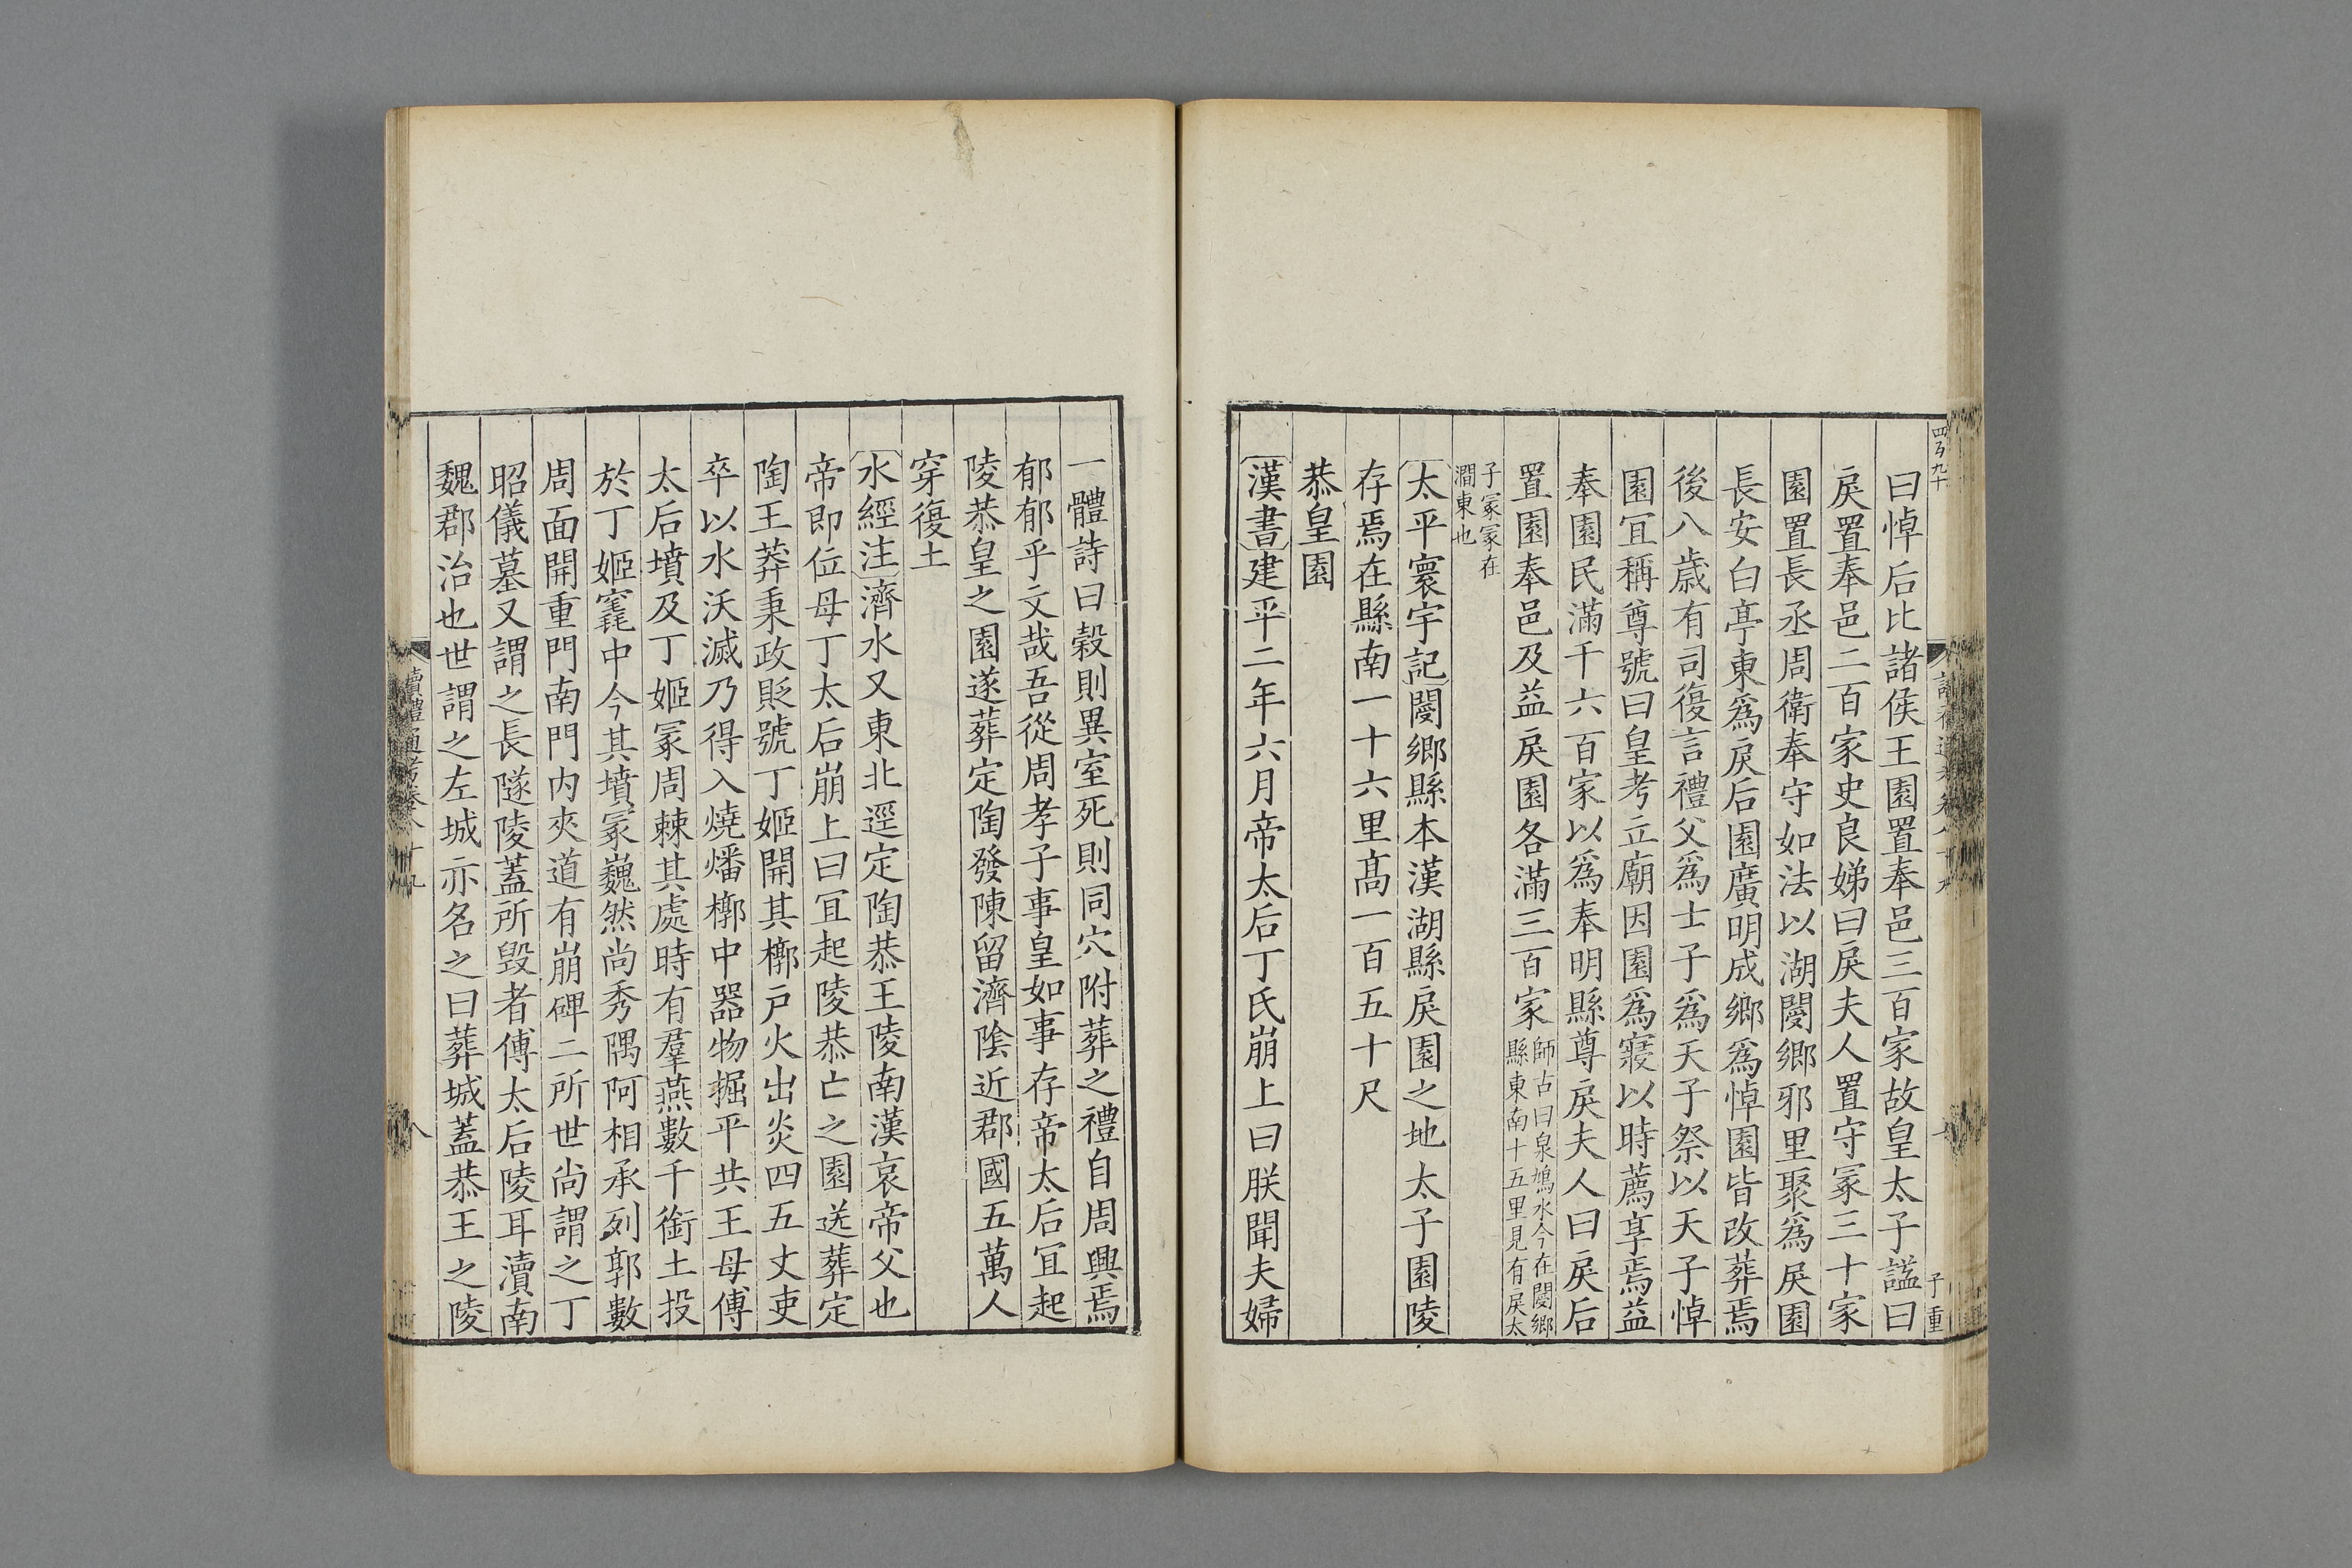 曰悼后比諸侯王園置奉邑三百家故皇太子諡曰
戾置奉邑二百家史良娣曰戾夫人置守冢三十家
園置長丞周衛奉守如法以湖閿鄉邪里聚爲戾園
長安白亭東爲戾后園廣明成鄉爲悼園皆改葬焉
後八歲有司復言禮父爲士子爲天子祭以天子悼
園宜稱尊號曰皇考立廟因園爲寢以時薦享焉益
奉園民滿千六百家以爲奉明縣尊戾夫人曰戾后
置園奉邑及益戾園各滿三百家師古曰泉鳩水今在閿鄉縣東南十五里見有戾太
子冢冢在澗東也
太平寰宇記閿鄉縣本漢湖縣戾園之地太子園陵
存焉在縣南一十六里髙一百五十尺
恭皇園
漢書建平二年六月帝太后丁氏崩上曰朕聞夫婦
一體詩曰穀則異室死則同穴附葬之禮自周興焉
郁郁乎文哉吾從周孝子事皇如事存帝太后宜起
陵恭皇之園遂葬定陶發陳留濟陰近郡國五萬人
穿復土
水經注濟水又東北逕定陶恭王陵南漢哀帝父也
帝即位母丁太后崩上曰宜起陵恭亡之園送葬定
陶王莽秉政貶號丁姬開其槨戶火出炎四五丈吏
卒以水沃滅乃得入燒燔槨中器物掘平共王母傅
太后墳及丁姬冢周棘其處時有羣燕數千銜土投
於丁姬竁中今其墳冢巍然尚秀隅阿相承列郭數
周面開重門南門内夾道有崩碑二所世尚謂之丁
昭儀墓又謂之長隧陵蓋所毀者傅太后陵耳瀆南
魏郡治也世謂之左城亦名之曰葬城蓋恭王之陵
讀禮通考卷八十九
八
四百九十
子重